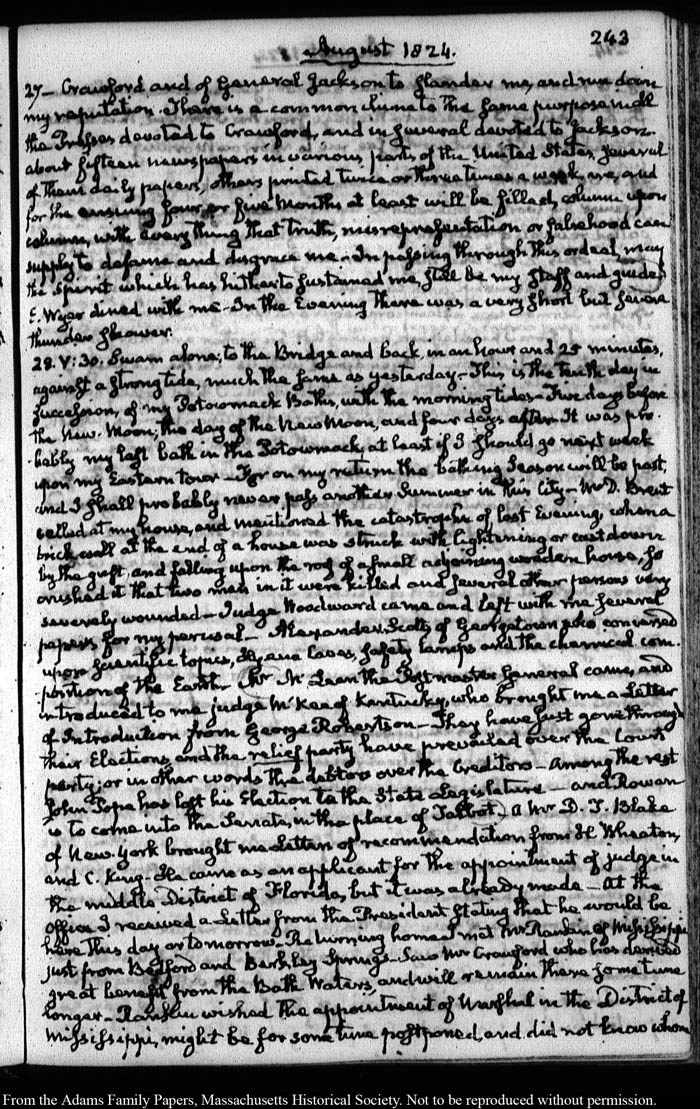 243
August 1824.
27– Crawford and of General Jackson to slander me, and run down
my reputation. There is a common chime to the same purpose in all
the Presses devoted to Crawford, and in general devoted to Jackson.
about fifteen newspapers in various parts of the United States, several
of them daily papers, others printed twice or three times a week, are, and
for the ensuing four or five months at least will be filled, column upon
column, with every thing that truth, misrepresentation or falsehood can
supply to defame and disgrace me. In passing through this ordeal, may
the Spirit which has hitherto sustained me, still be my staff and guide.
E. Wyer dined with me– In the Evening there was a very short but severe
thunder shower.
28. V:30. Swam alone, to the Bridge and back, in an hour and 25 minutes,
against a strong tide, much the same as yesterday– This is the tenth day in
succession, of my Potowmack Baths, with the morning tides– Five days before
the New Moon, the day of the New Moon, and four days after. It was pro-
bably my last bath in the Potowmack, at least if I should go next week
upon my Eastern tour– For on my return the bathing Season will be past,
and I shall probably never pass another Summer in this City– Mr D. Brent
called at my house, and mentioned the catastrophe of last Evening, when a
brick wall at the end of a house was struck with lightening or cast down
by the gust, and falling upon the roof of a small adjoining wooden house, so
crushed it that two men in it were killed and several other persons very
severely wounded– Judge Woodward came and left with me several
papers for my perusal– Alexander Scott of Georgetown who conversed
upon scientific topics, Hyena Caves, safety lamps and the chemical com-
position of the Earth– Mr McLean the Postmaster General came, and
introduced to me judge McKee of Kentucky, who brought me a Letter
of Introduction from George Robertson– They have just gone through
their Elections, and the relief party have prevailed over the Court
party; or in other words the debtors over the Creditors– Among the rest
John Pope has lost his Election to the State Legislature– and Rowan
is to come into the Senate, in the place of Talbot. A Mr D. T. Blake
of New York brought me Letters of recommendation from H Wheaton,
and C. King– He came as an applicant for the appointment of judge in
the middle District of Florida, but it was already made– At the
Office I received a Letter from the President stating that he would be
here this day or tomorrow. Returning home I met Mr Rankin of Mississippi
just from Bedford and Berkley Springs– Saw Mr Crawford who has derived
great benefit from the Bath Waters, and will remain there some time
longer– Rankin wished the appointment of Marshal in the District of
Mississippi, might be for some time postponed, and did not know whom
From the Adams Family Papers, Massachusetts Historical Society. Not to be reproduced without permission.